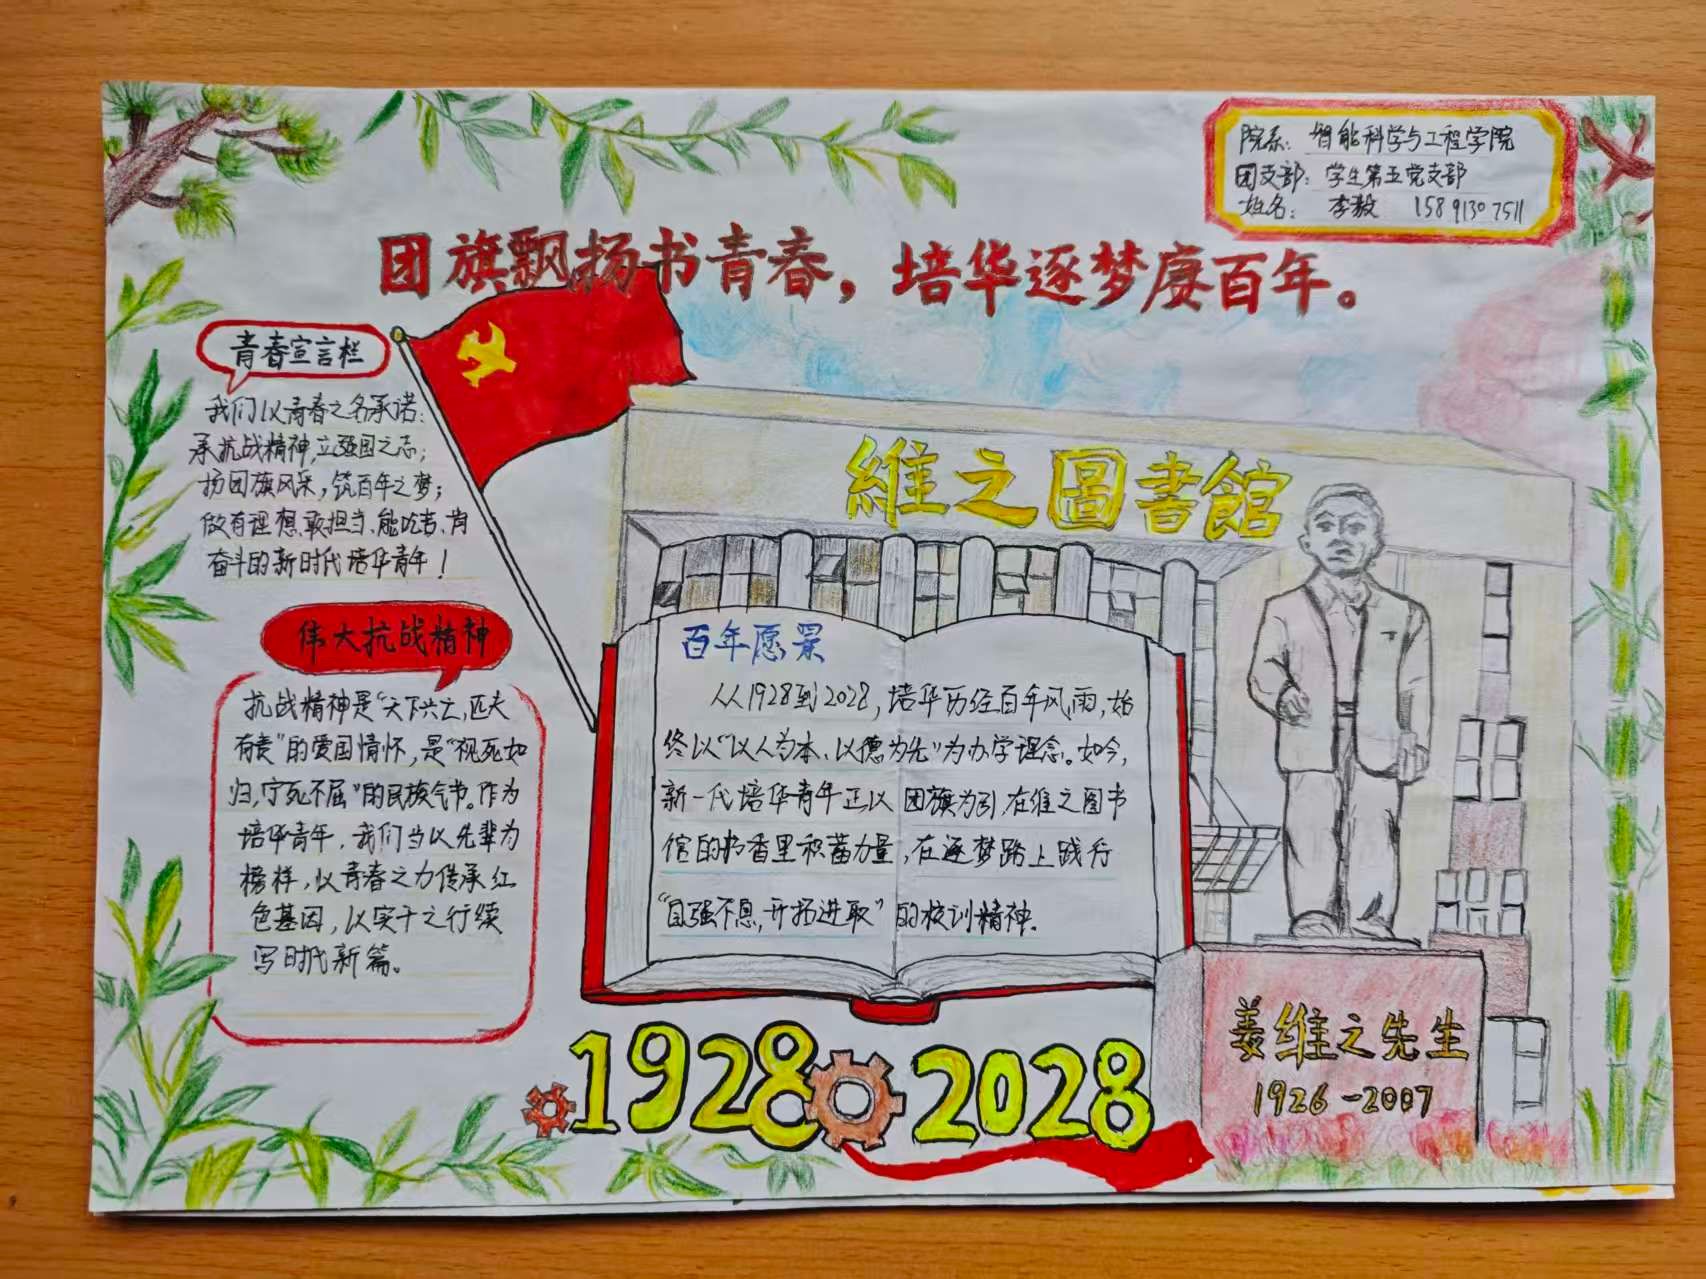 院系：智能科学与工程学院
团支部：学生第五党支部
姓名：李毅 15891307511
团旗飘扬书青春，培华逐梦赓百年。
青春宣言栏
我们以青春之名承诺：
承抗战精神，立强国之志；
扬团旗风采，筑百年之梦；
做有理想、敢担当、能吃苦、肯
奋斗的新时代培华青年！
伟大抗战精神
抗战精神是“天下兴亡，匹夫
有责”的爱国情怀，是“视死如
归，宁死不屈”的民族气节。作为
培华青年，我们当以先辈为
榜样，以青春之力传承红
色基因，以实干之行续
写时代新篇。
維之圖書館
百年愿景
从1928到2028，培华历经百年风雨，始
终以“以人为本、以德为先”为办学理念。如今，
新一代培华青年正以团旗为引，在维之图书
馆的书香里积蓄力量，在逐梦路上践行
“自强不息，开拓进取”的校训精神。
姜维之先生
1926-2007
1928 2028